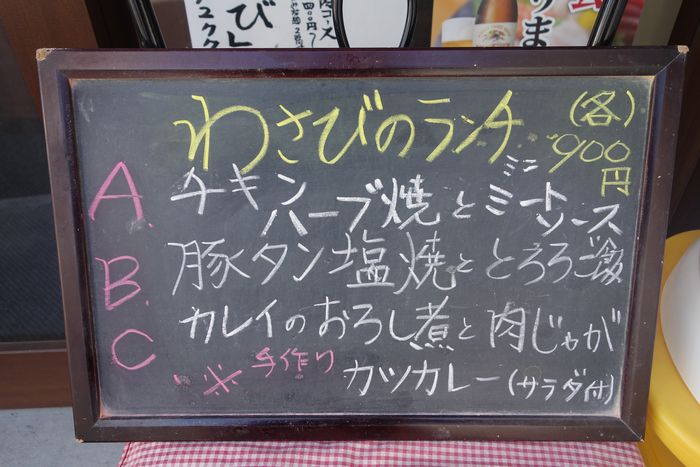 わさびのランチ (各)900円
A. チキンハーブ焼とミニミートソース
B. 豚タン塩焼ととろろご飯
C カレイのおろし煮と肉じゃが
※手作り カツカレー(サラダ付)